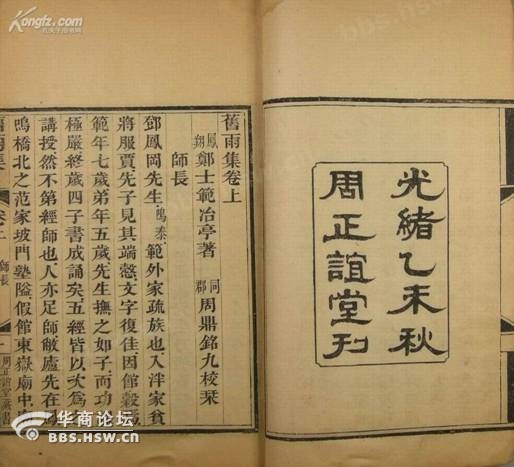 光緒乙未秋
周正誼堂刊
舊雨集卷上
鳳翔 鄭士範冶亭著 同郡 周鼎銘九校栞
師長
鄧鳳岡先生鳴泰範外家疏族也入泮家貧
將服賈先子見其端愨文字復佳因館穀
範年七歲弟年五歲先生撫之如子而功
極嚴終歲四子書成誦矣五經皆以次為
講授然不第經師也人亦足師敏廬先在
鳴橋北之范家坡門塾隘假館東嶽廟中
舊雨集 卷上 師長 一 周正誼堂叢書
Kongfz.com
华商论坛
BBS.HSW.CN